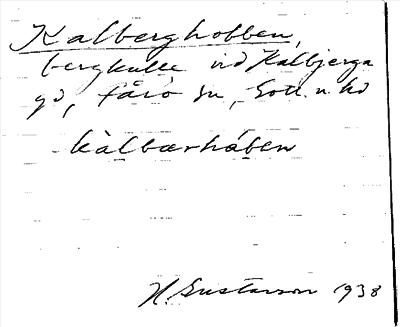 Kalberghobben,
bergkulle vid Kalbjerga
gd, Fårö sn, Gotl. n hd
kàlbærhåben
H. Gustavson 1938